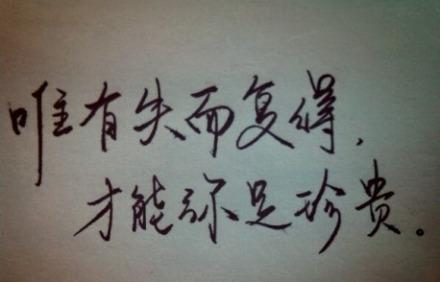 唯有失而复得,
才能弥足珍贵。